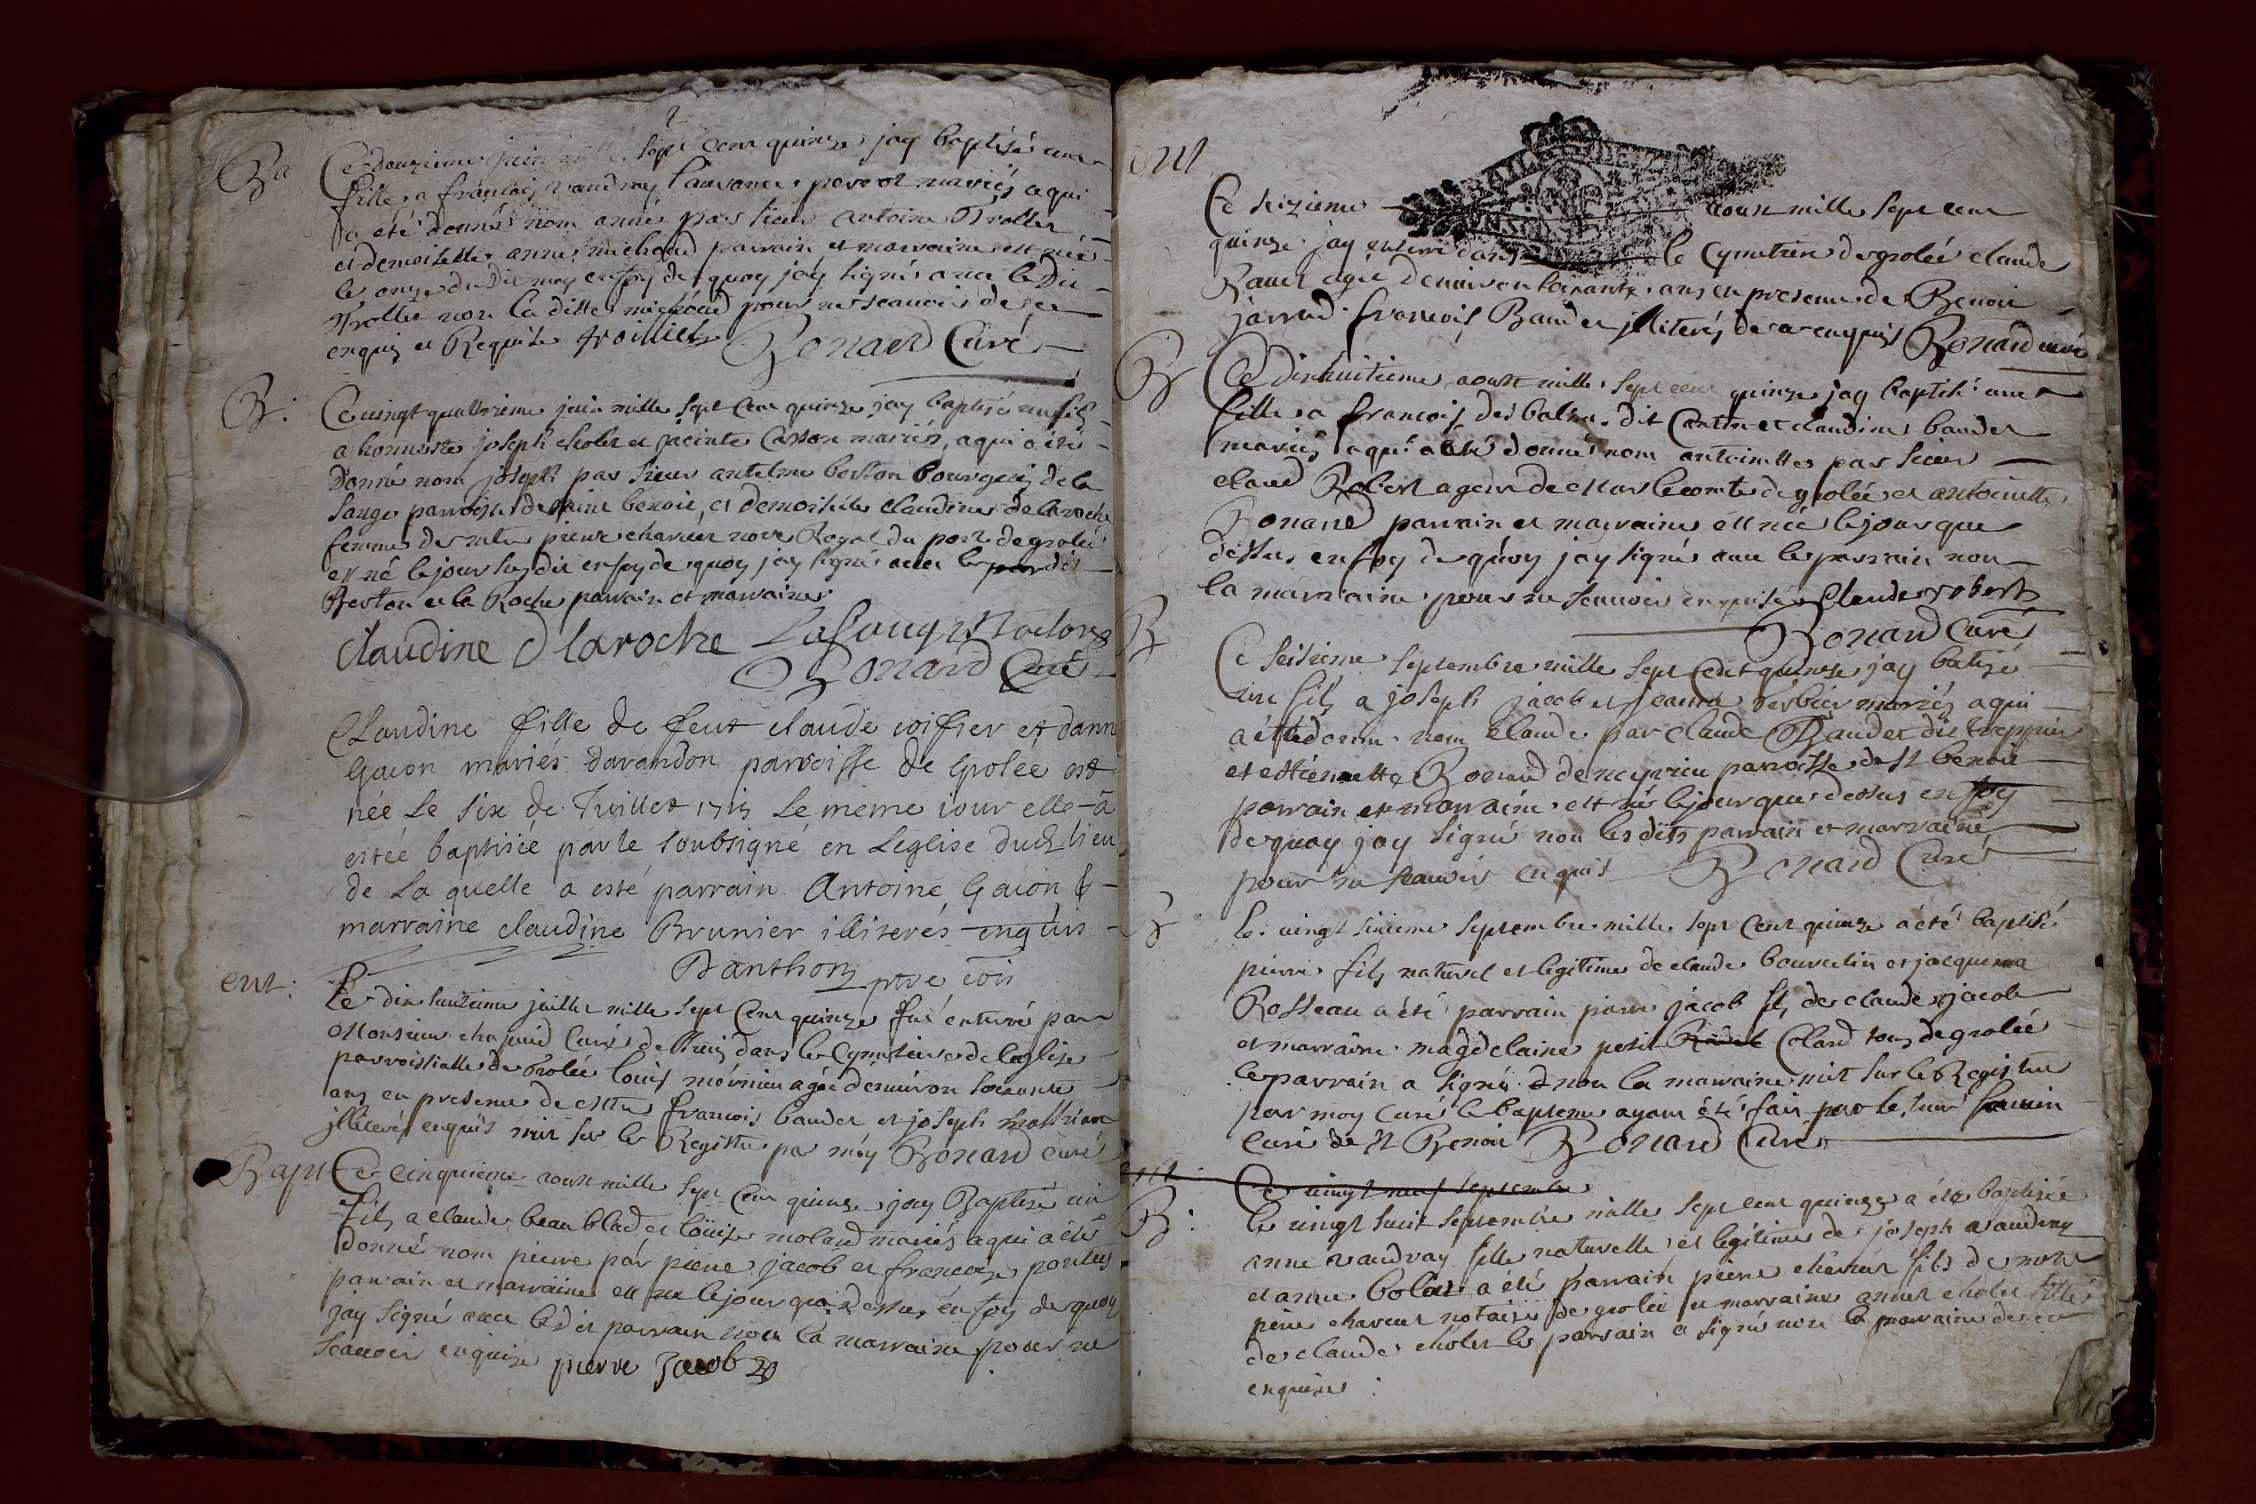 Ba
Ce douzieme juin mille sept cent quinze jay baptisé une
fille a francois vaudray laurance perrot mariés a qui
a été donné nom anne par sieur antoine Trollier
et demoiselle anne michaud parrain et marraine est née
le onze du dit moy en foy de quoy jay signé avec le dit
Trollier non la ditte michoud pour ne scauoir de ce
enquis et Requise trollliet Bonard Curé
B:
Ce uingt quattrieme juin mille sept cent quinze jay baptizé un fils
a honneste joseph cholet et jacinte Casson mariés, a qui a été
donné nom joseph par sieur antelme berton bourgeois de la
sauge parroisse de saint benoit, et demoiselle claudine de la roche
femme de pierre charuet Royal du port de grolée
est né le jour susdit en foy de quoy jay signé auec les par dit
Berton et la Roche parrain et marraine
claudine d laroche Lasauge
Bonard Curé
Claudine fille de feut claude coiffier et dann
Gaion mariés davandon parroisse de Grolée est
née Le six de Juillet 1715 Le meme iour elle a
estée baptisée par le soubsigné en Leglise dud lieu
de La quelle a esté parrain Antoine Gaion &
marraine claudine Brunier illiterés enquis
Danthon ptre
ent:
Le dix huitieme juillet mille sept cent quinze fut enterré par
Monsieur chapuid Curé de dans le Cymetiere de leglise
parroissialle de Grolée louis mornieu agée denuiron soixante
ans en presence de francois baudet et joseph
jlliterés enquis mis sur le Registre par moy Bonard curé
Bapt
Ce cinquieme aoust mille sept cent quinze jay Baptisé un
fils a claude beau blad et louise molard mariés a qui a été
donné nom pierre par pierre jacob et francoise
parrain et marraine est ne le jour que dessus en foy de quoy
jay signé auec le dit parrain non la marraine pour ne
scauoir enquise pierre Jacob
ent
Ce seizieme aoust mille sept cent
quinze jay enterré dans le Cymetiere de grolée claude
agée denuiron soixante ans en presence de Benoit
jarrod francois Baudet jlliterés de ce enquis Bonard curé
B
Ce dixhuitieme aoust mille sept cent quinze jay baptisé une
fille a francois des balme dit Cantin et claudine baudet
mariés a qui a été donné nom antoinette par sieur
claud Robert agent de Mons le comte de grolée et antoinette
Bonard parrain et marraine est née le jour que
dessus en foy de quoy jay signé auec le parrain non
la marraine pour ne scauoir enquise Claude robert
Bonard Curé
B
Ce seizieme septembre mille sept cent quinze jay batizé
un fils a joseph jacob et jeanne mariés a qui
a été donné nom claude par claude Baudet dit treppier
et estiennette Bonard de neyrieu parroisse de st benoit
parrain et marraine est né le jour que dessus en foy
de quoy jay signé non les dits parrain et marraine
pour ne scauoir enquis Bonard Curé
B
le uingt sixieme septembre mille sept cent quinze a été baptisé
pierre fils naturel et legitime de claude bourcelin et jacquema
Rosseau a été parrain pierre jacob fils de claude jacob
et marraine magdelaine petit Clard tous de grolée
le parrain a signé & non la marraine mis sur le Registre
par moy Curé le bapteme ayant été fait par le sieur
curé de St Benoit Bonard Curé
ent:
Ce uingt neuf septembre
B:
le uingt huit septembre mille sept cent quinze a été baptisée
anne vaudray fille naturelle et legitime de joseph vaudray
et anne bolon a été parrain pierre charuet fils de
pierre charuet notaire de grolée et marraine cholet fille
de claude cholet le parrain a signé non la marraine de ce
enquise